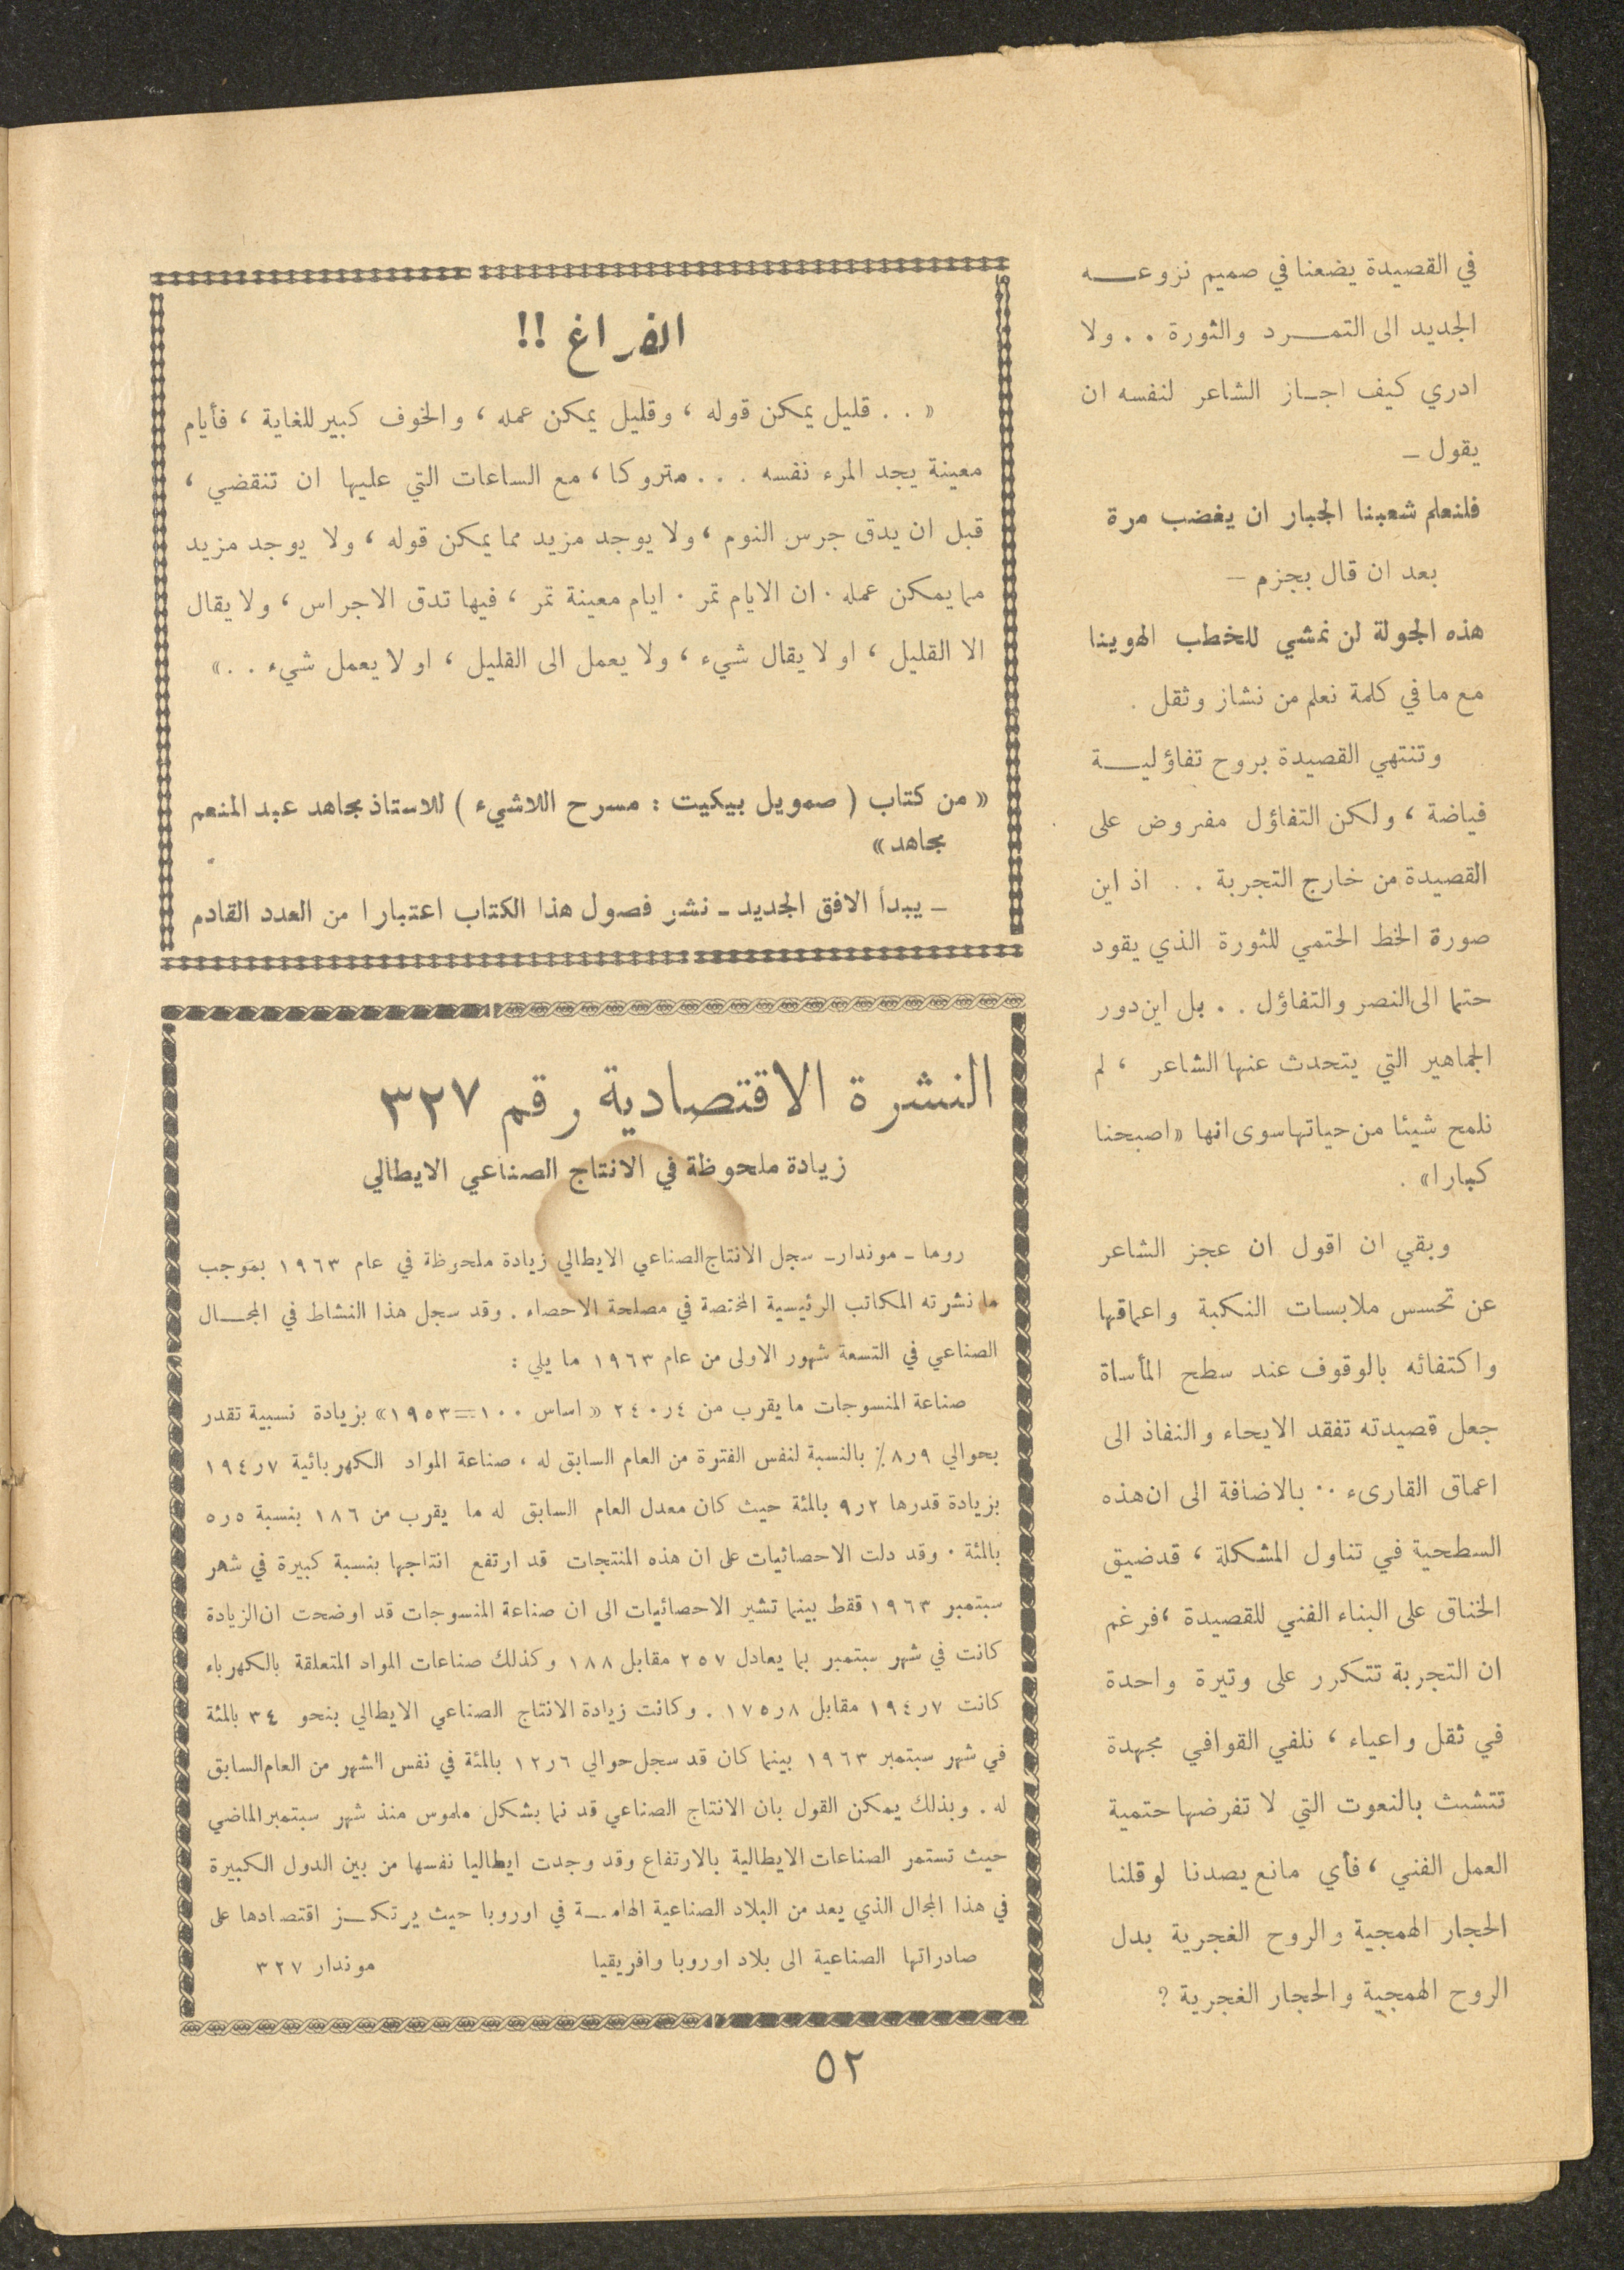 في القصيدة يضعنا في صميم نزوعه
الجديد الى التمرد والثورة . . ولا
ادري كيف اجاز الشاعر لنفسه ان
يقول –
فلنعلم شعبنا الجبار ان يغضب مرة
بعد ان قال بجزم –
هذه الجولة لن نمشي للخطب الهوينا
مع ما في كلمة نعلم من نشاز وثقل .
وتنتهي القصيدة بروح تفاؤلية
فياضة ، ولكن التفاؤل مفروض على
القصيدة من خارج التجربة . . اذ اين
صورة الخط الحتمي للثورة الذي يقود
حتما الى النصر والتفاؤل . . بل اين دور
الجماهير التي يتحدث عنها الشاعر ، لم
نلمح شيئا من حياتها سوى انها « اصبحنا
كبارا » .
وبقي ان اقول ان عجز الشاعر
عن تحسس ملابسات النكبة واعماقها
واكتفائه بالوقوف عند سطح المأساة
جعل قصيدته تفقد الايحاء والنفاذ الى
اعماق القارىء . . بالاضافة الى ان هذه
السطحية في تناول المشكلة ، قد ضيق
الخناق على البناء الفني للقصيدة ، فرغم
ان التجربة تتكرر على وتيرة واحدة
في ثقل واعياء ، نلفي القوافي مجهدة
تتشبث بالنعوت التي لا تفرضها حتمية
العمل الفني ، فأي مانع يصدنا لو قلنا
الحجار الهمجية والروح الغجرية بدل
الروح الهمجية والحجار الغجرية ؟
الفراغ !!
« . . قليل يمكن قوله ، وقليل يمكن عمله ، والخوف كبير للغاية ، فأيام
معينة يجد المرء نفسه . . . متروكا ، مع الساعات التي عليها ان تنقضي ،
قبل ان يدق جرس النوم ، ولا يوجد مزيد مما يمكن قوله ، ولا يوجد مزيد
مما يمكن عمله . ان الايام تمر . ايام معينة تمر ، فيها تدق الاجراس ، ولا يقال
الا القليل ، او لا يقال شيء ، ولا يعمل الى القليل ، او لا يعمل شيء . . »
« من كتاب ( صمويل بيكيت : مسرح اللاشيء ) للاستاذ مجاهد عبد المنعم
مجاهد »
– يبدأ الافق الجديد – نشر فصول هذا الكتاب اعتبارا من العدد القادم
النشرة الاقتصادية رقم ٣٢٧
زيادة ملحوظة في الانتاج الصناعي الايطالي
روما – موندار – سجل الانتاج الصناعي الايطالي زيادة ملحوظة في عام ١٩٦٣ بموجب
ما نشرته المكاتب الرئيسية المختصة في مصلحة الاحصاء . وقد سجل هذا النشاط في المجال
الصناعي في التسعة شهور الاولى من عام ١٩٦٣ ما يلي :
صناعة المنسوجات ما يقرب من ٢٤٠٫٤ « اساس ١٠٠ = ١٩٥٣ » بزيادة نسبية تقدر
بحوالي ٨٫٩٪ بالنسبة لنفس الفترة من العام السابق له ، صناعة المواد الكهربائية ١٩٤٫٧
بزيادة قدرها ٩٫٢ بالمئة حيث كان معدل العام السابق له ما يقرب من ١٨٦ بنسبة ٥٫٥
بالمئة . وقد دلت الاحصائيات على ان هذه المنتجات قد ارتفع انتاجها بنسبة كبيرة في شهر
سبتمبر ١٩٦٣ فقط بينما تشير الاحصائيات الى ان صناعة المنسوجات قد اوضحت ان الزيادة
كانت في شهر سبتمبر بما يعادل ٢٥٧ مقابل ١٨٨ وكذلك صناعات المواد المتعلقة بالكهرباء
كانت ١٩٤٫٧ مقابل ١٧٥٫٨ . وكانت زيادة الانتاج الصناعي الايطالي بنحو ٣٤ بالمئة
في شهر سبتمبر ١٩٦٣ بينما كان قد سجل حوالي ١٢٫٦ بالمئة في نفس الشهر من العام السابق
له . وبذلك يمكن القول بان الانتاج الصناعي قد نما بشكل ملموس منذ شهر سبتمبر الماضي
حيث تستمر الصناعات الايطالية بالارتفاع وقد وجدت ايطاليا نفسها من بين الدول الكبيرة
في هذا المجال الذي يعد من البلاد الصناعية الهامة في اوروبا حيث يرتكز اقتصادها على
صادراتها الصناعية الى بلاد اوروبا وافريقيا موندار ٣٢٧
٥٢